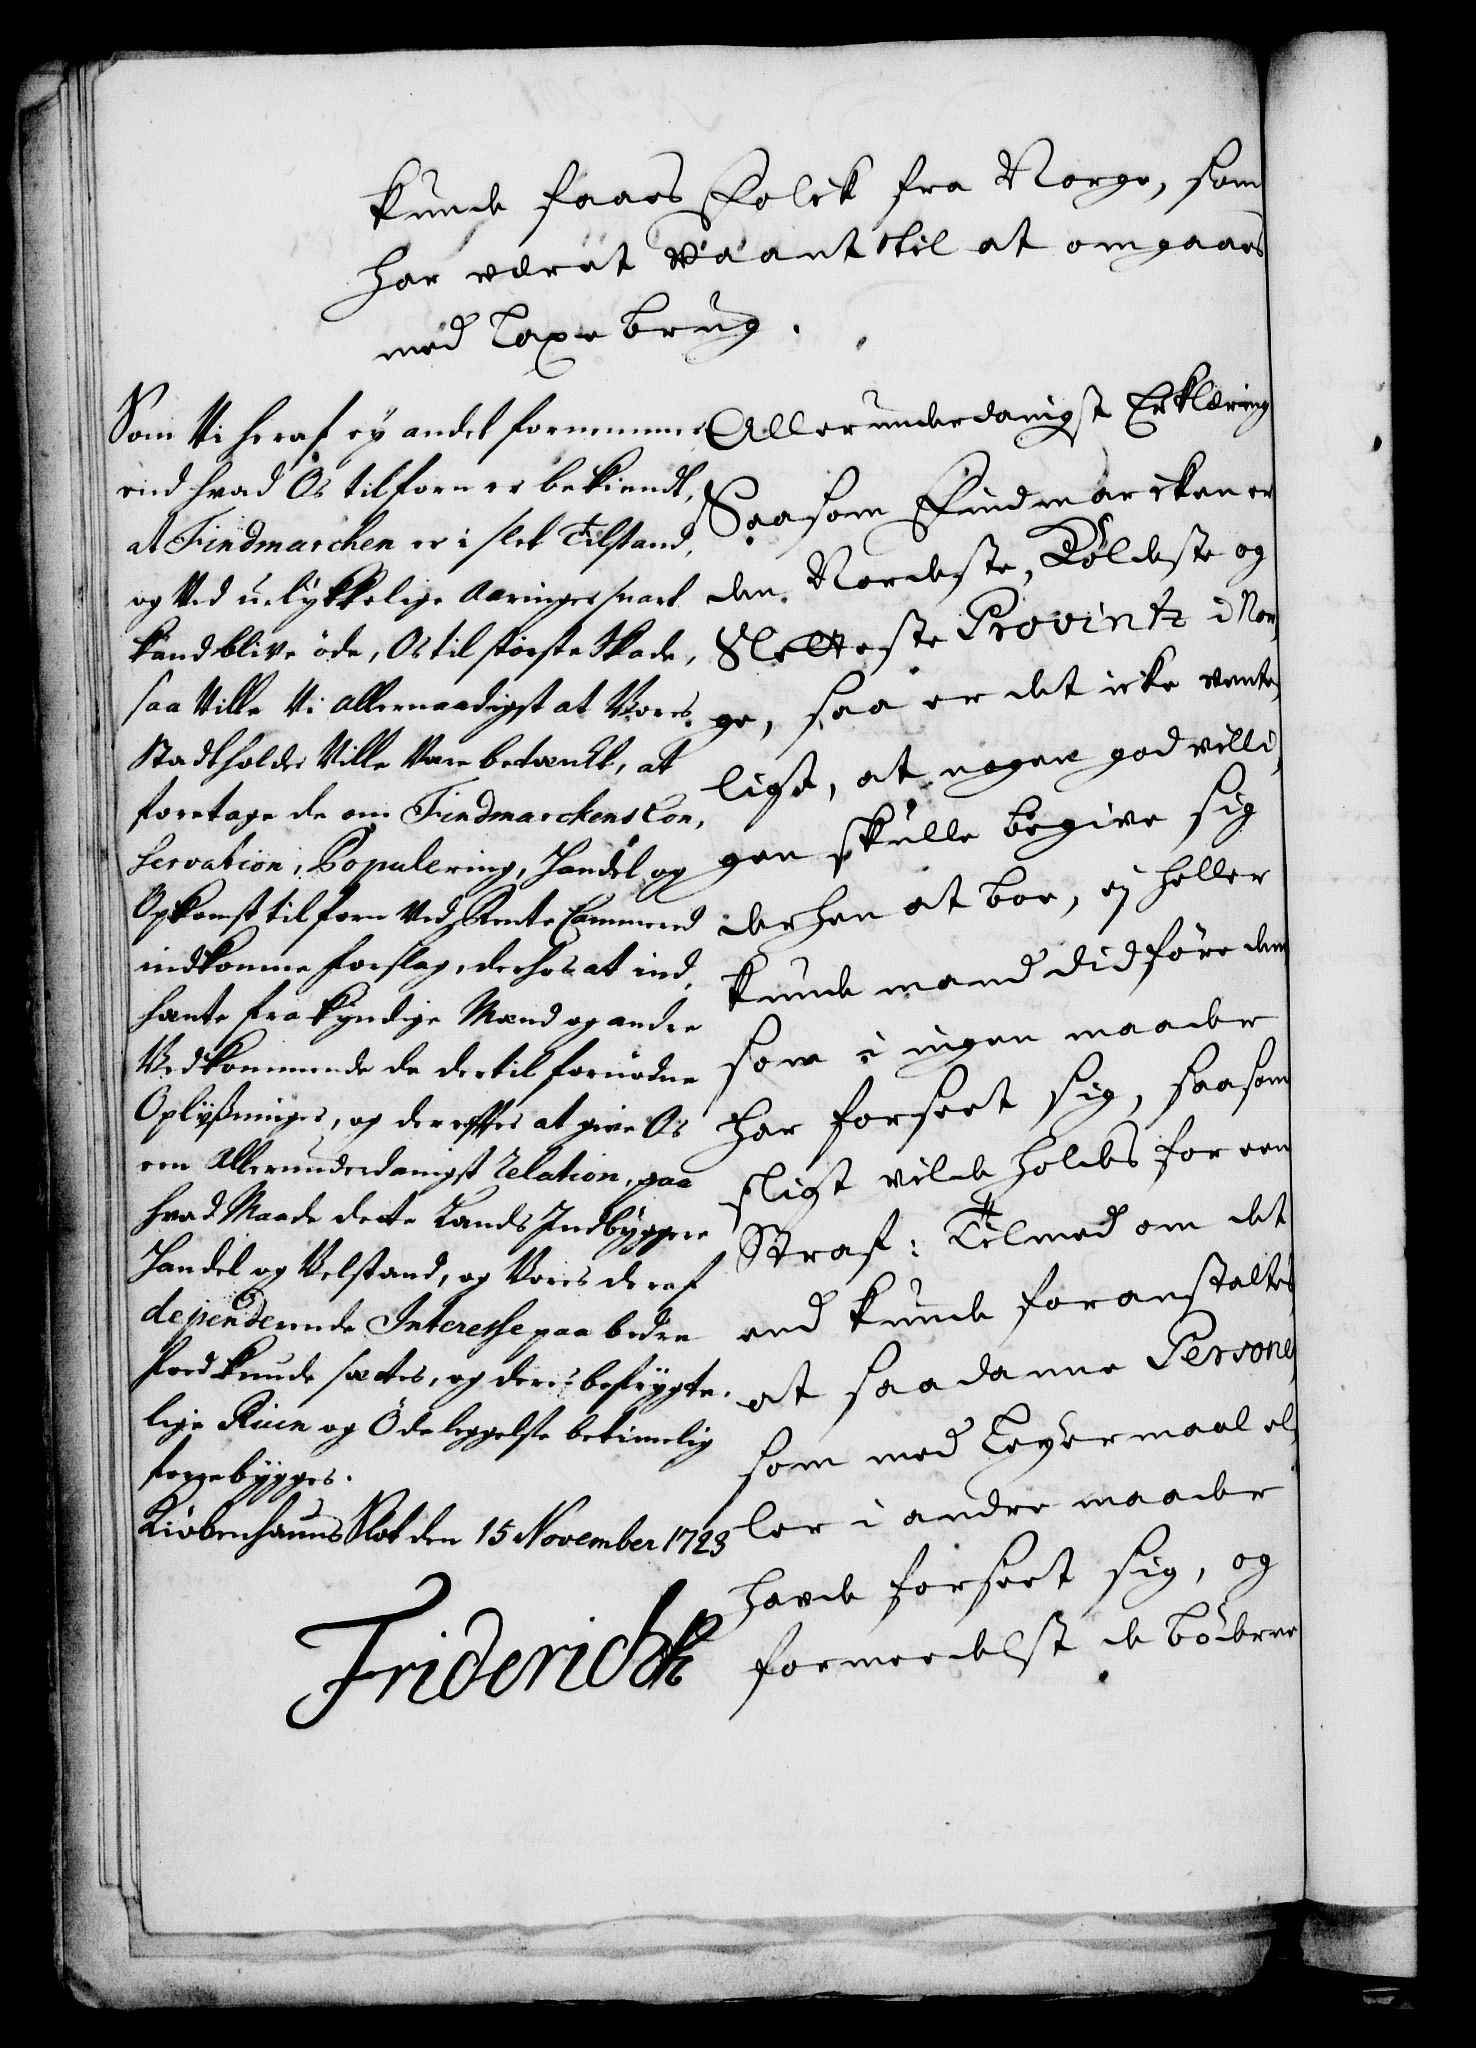 kunde faaes Folck fra Norge, som
har været Vaant til at omgaaes
med Laxe brug.
Som Vi heraf ey andet fornemmer
end hvad Os tilforn er bekiendt,
at Findmarchen er i slet Tilstand,
og Ved ulykkelige Aaringer snart
kand blive öde, Os til største Skade,
saa Ville Vi allernaadigst at Vores
Stadtholder Ville Være betænckt, at
foretage de om Findmarckens Con,
servation, Populering, Handel og
Opkomst tilforn Ved Rente Cammeret
indkomne forslag, derhos at ind,
hente fra kyndige Mænd og andre
Vedkommende de dertil fornödne
Oplysninger, og derefter at give Os
een Allerunderdanigst Relation, paa
hvad Maade dette Lands Indbyggere
Handel og Velstand, og Vores deraf
dependerende Interesse paa bedre
foed kunde sættes, og deres befrygte,
lige Ruin og Ödeleggelse betimelig
forrebygges.
Kiöbenhauns Slot den 15 November 1723
Friderich R
Allerunderdanigst Erklæring
Saasom Findmarcken er
den Nordeste, Köldeste og
Sletteste Provintz i Nor,
ge, saa er det icke vente,
ligt, at nogen godvilli,
gen skulle begive sig
derhen at boe, ej heller
kunde mand didföre dem
som i ingen maader
har forseet sig, saasom
sligt vilde holdes for een
Straf: Tilmed om det
end kunde foranstaltes,
at saadanne Persone,
som med Leyermaal el,
ler i andre maader
havde forseet sig, og
formedelst de böderne